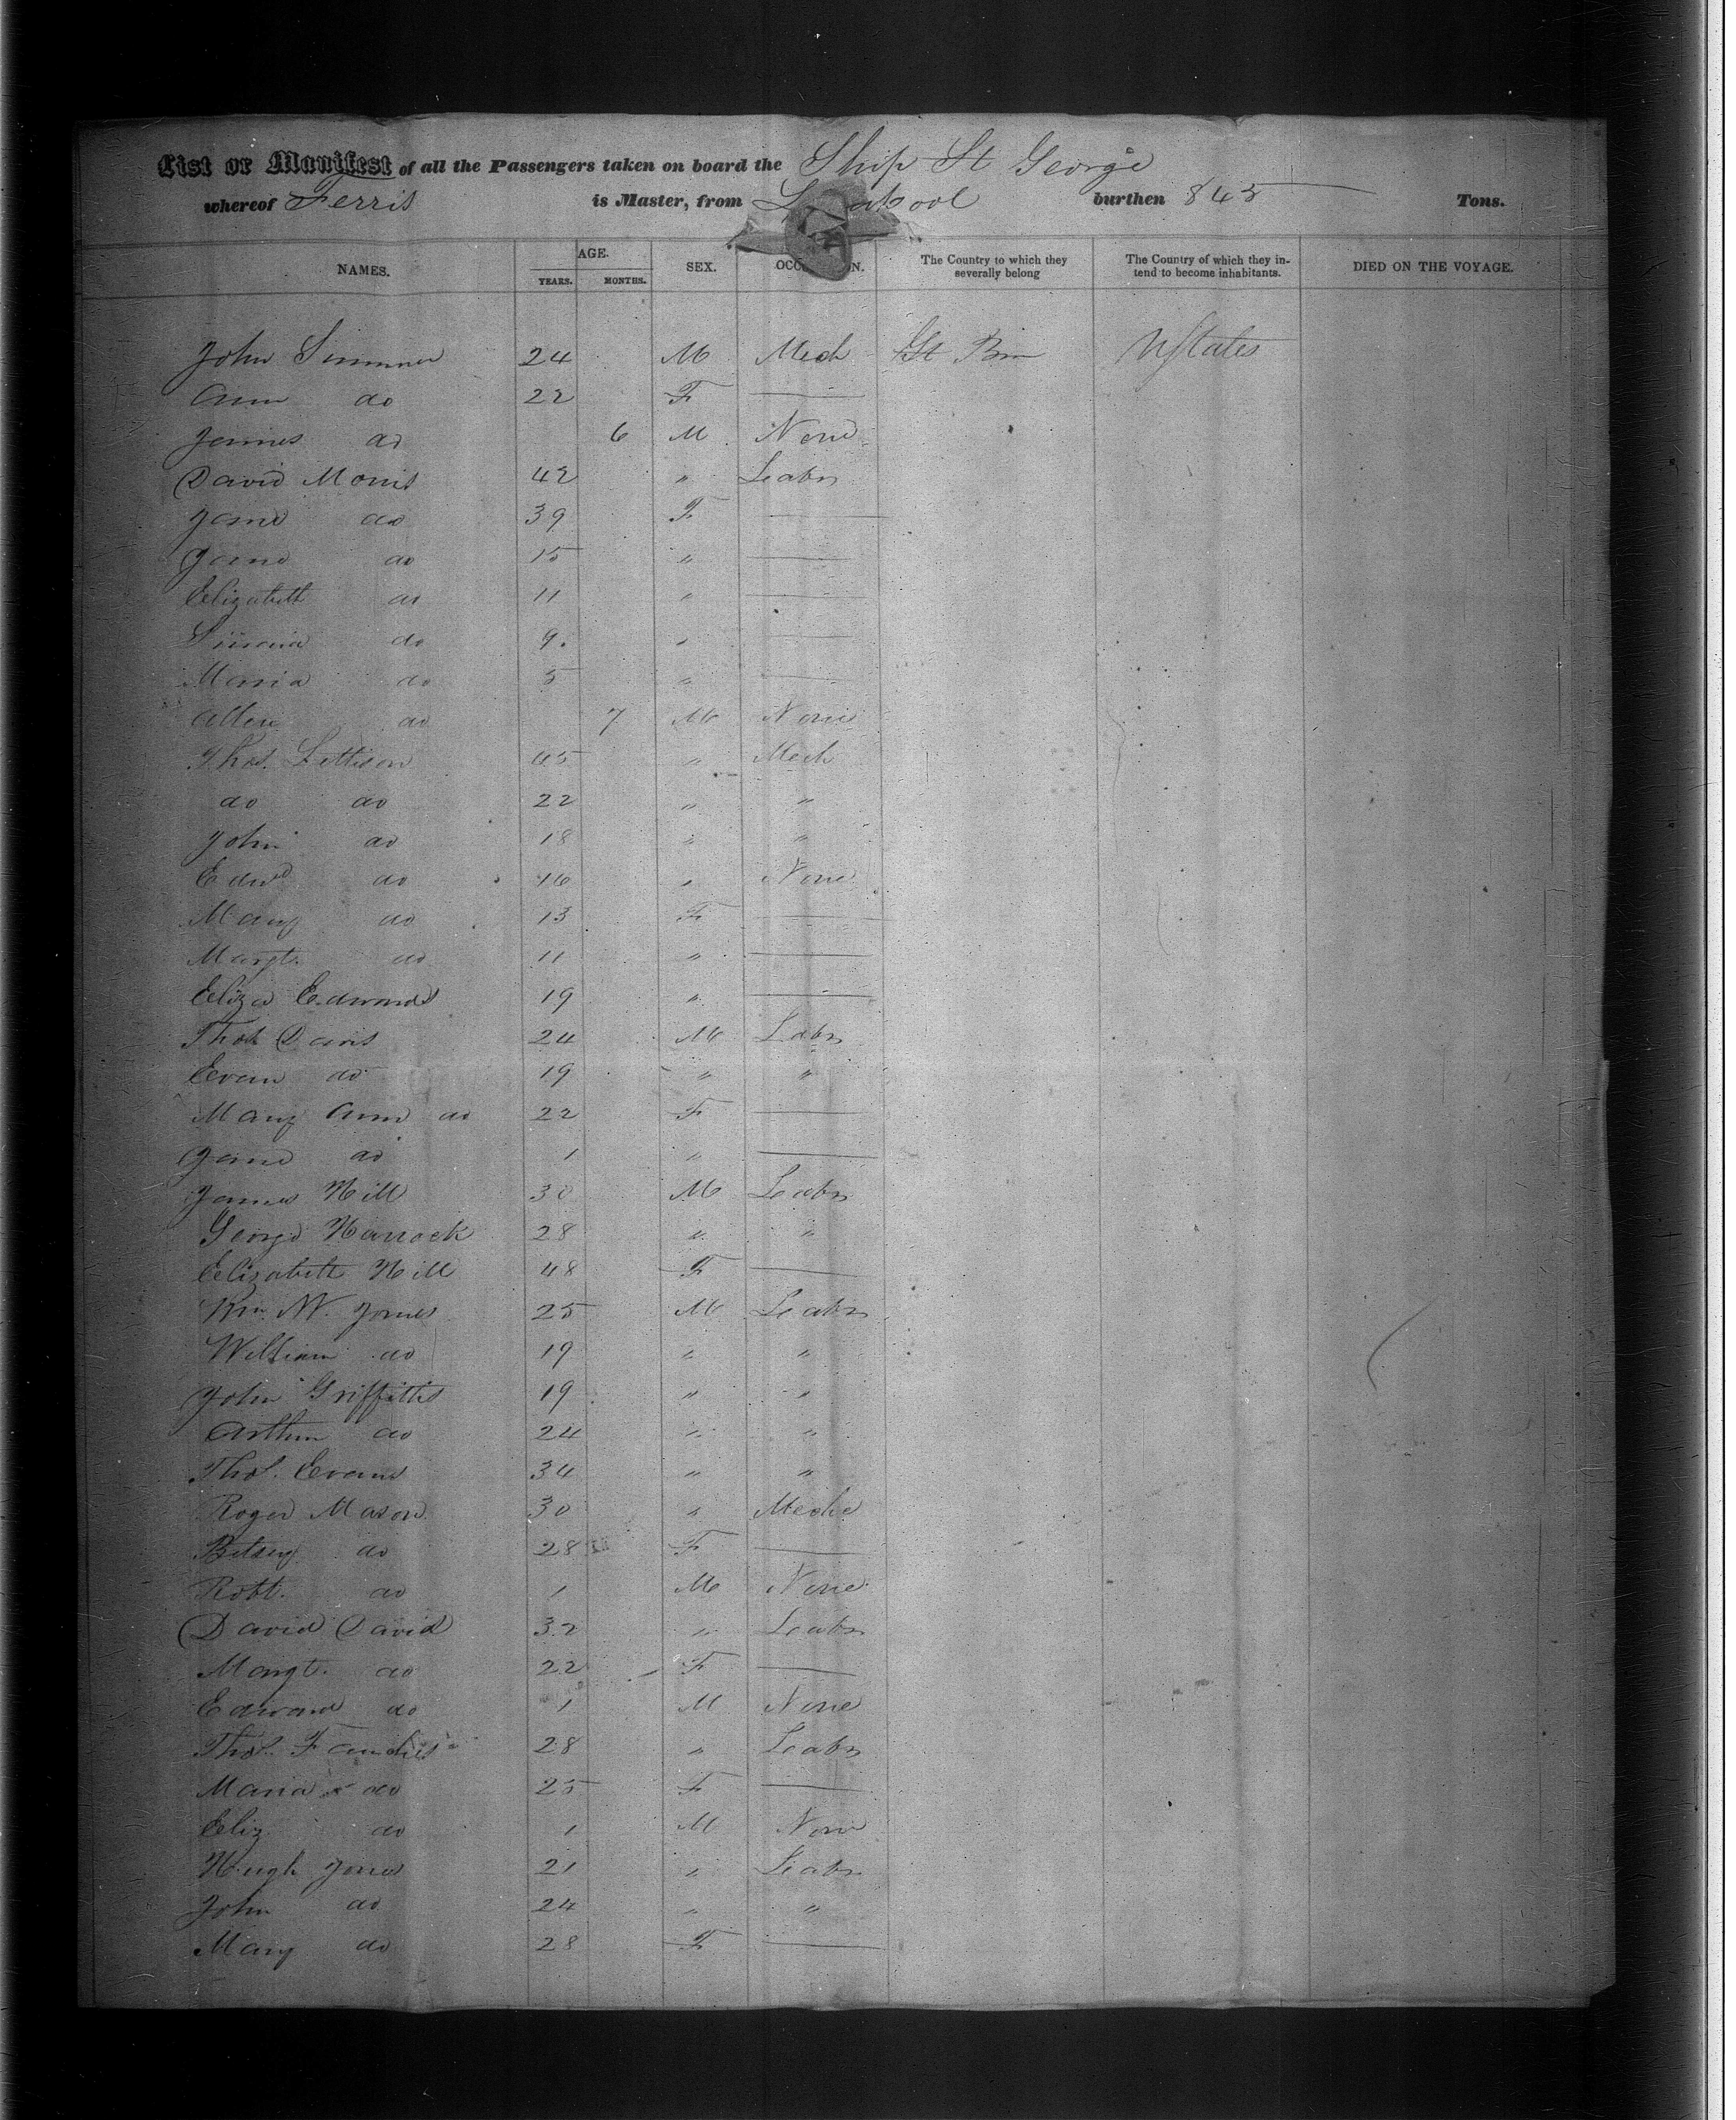 List or Manifest of all the Passengers taken on board the Ship St George
whereof Ferris is Master, from burthen 845 Tons.
NAMES. AGE. YEARS. MONTHS. SEX. The Country to which they severally belong The Country of which they intend to become inhabitants. DIED ON THE VOYAGE.
John 24 M Mech Gt Brn UStates
Ann do 22 F
James do 6 M None
David Morris 42 " Labr
Jane do 39 F
Jane do 15 "
Elizabeth do 11 "
do 9 "
Maria do 5 "
do 7 M None
Thos. Lettison 45 " Mech
do do 22 " "
John do 18 " "
Edwd do 16 " None
Mary do 13 F
Margt. do 11 "
Eliza Edwards 19 "
Thos Davis 24 M Labr
Evan do 19 " "
Mary Ann do 22 F
Jane do 1 "
James Hill 30 M Labr
George 28 " "
Elizabeth Hill 48 F
Wm. W. Jones 25 M Labr
William do 19 " "
John Griffiths 19 " "
Arthur do 24 " "
Thos. Evans 34 " "
Roger Mason 30 " Mechc
Betsey do 28 F
Robt. do 1 M None
David David 32 " Labr
Margt. do 22 F
Edward do 1 M None
Thos. 28 " Labr
Maria do 25 F
Eliz do 1 M None
Hugh Jones 21 " Labr
John do 24 " "
Mary do 28 F